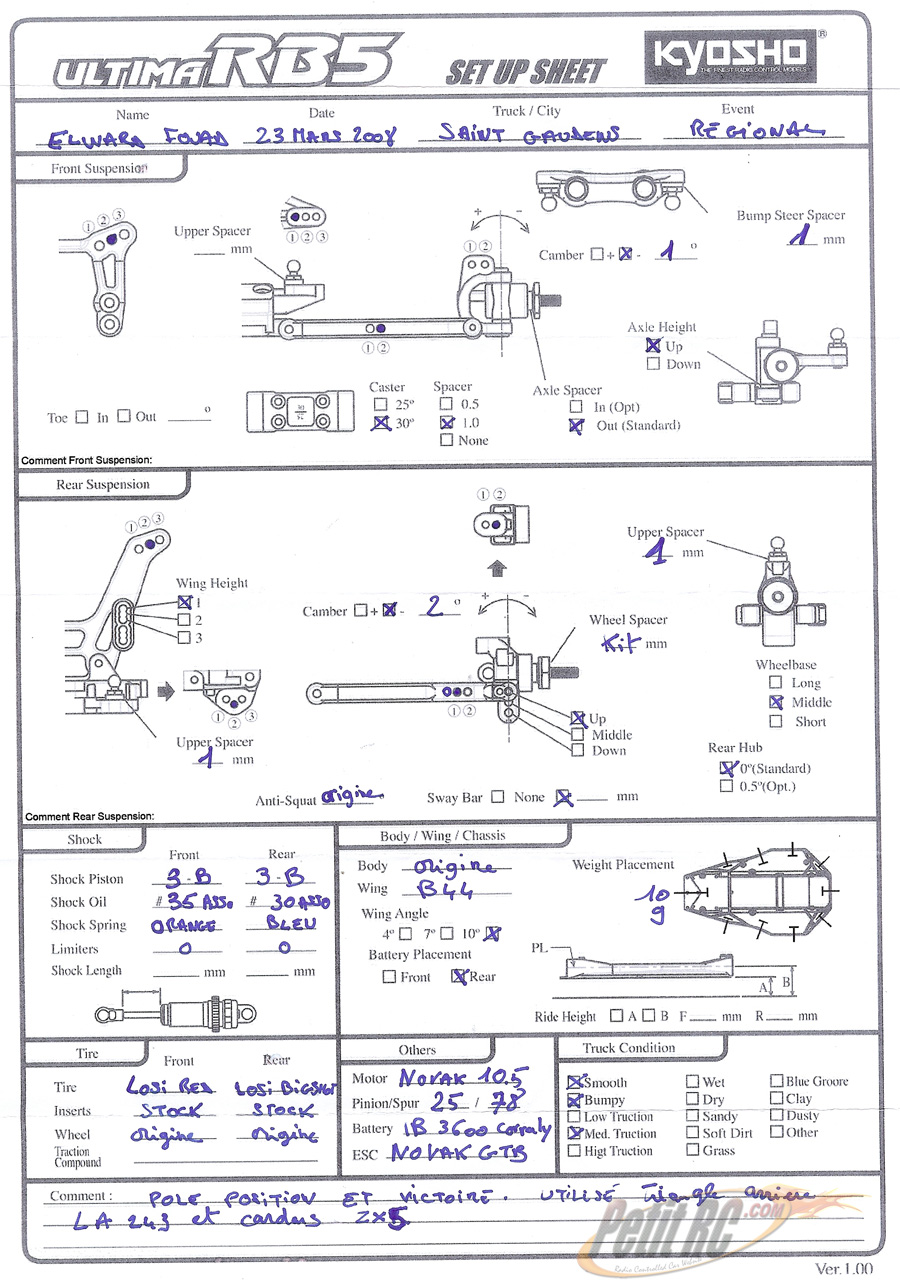 ULTIMA RB5 SET UP SHEET KYOSHO ®
THE FINEST RADIO CONTROL MODELS
Name Date Truck / City Event
ELWARD FOUAD 23 MARS 2008 SAINT GAUDENS RÉGIONAL
Front Suspension
① ② ③
Upper Spacer ____ mm
① ② ③
+ -
① ②
Bump Steer Spacer
1 mm
Camber + - 1 °
Axle Height
Up
Down
① ②
Toe In Out ____ °
Caster
25°
30°
Spacer
0.5
1.0
None
Axle Spacer
In (Opt)
Out (Standard)
Comment Front Suspension:
Rear Suspension
① ② ③
Wing Height
1
2
3
① ②
Camber + - 2 °
+ -
Upper Spacer
1 mm
Wheel Spacer
Kit mm
Wheelbase
Long
Middle
Short
① ② ③
① ②
Up
Middle
Down
Upper Spacer
1 mm
Rear Hub
0°(Standard)
0.5°(Opt.)
Anti-Squat origine Sway Bar None ____ mm
Comment Rear Suspension:
Shock
Front Rear
Shock Piston 3-B 3-B
Shock Oil # 35 ASSO # 30 ASSO
Shock Spring ORANGE BLEU
Limiters 0 0
Shock Length ____ mm ____ mm
Body / Wing / Chassis
Body origine
Wing B44
Wing Angle
4° 7° 10°
Battery Placement
Front Rear
Weight Placement
10
g
PL
A B
Ride Height A B F ____ mm R ____ mm
Tire
Front Rear
Tire LOSI RED LOSI BIGSHOT
Inserts STOCK STOCK
Wheel origine origine
Traction
Compound
Others
Motor NOVAK 10.5
Pinion/Spur 25 / 78
Battery IB 3600 Corally
ESC NOVAK GTB
Truck Condition
Smooth Wet Blue Groore
Bumpy Dry Clay
Low Truction Sandy Dusty
Med. Truction Soft Dirt Other
Higt Truction Grass
Comment : POLE POSITION ET VICTOIRE. UTILISÉ triangle arriere
LA 243 et cardans ZX5
Petit RC.COM
Radio Controlled Car Website
Ver.1.00